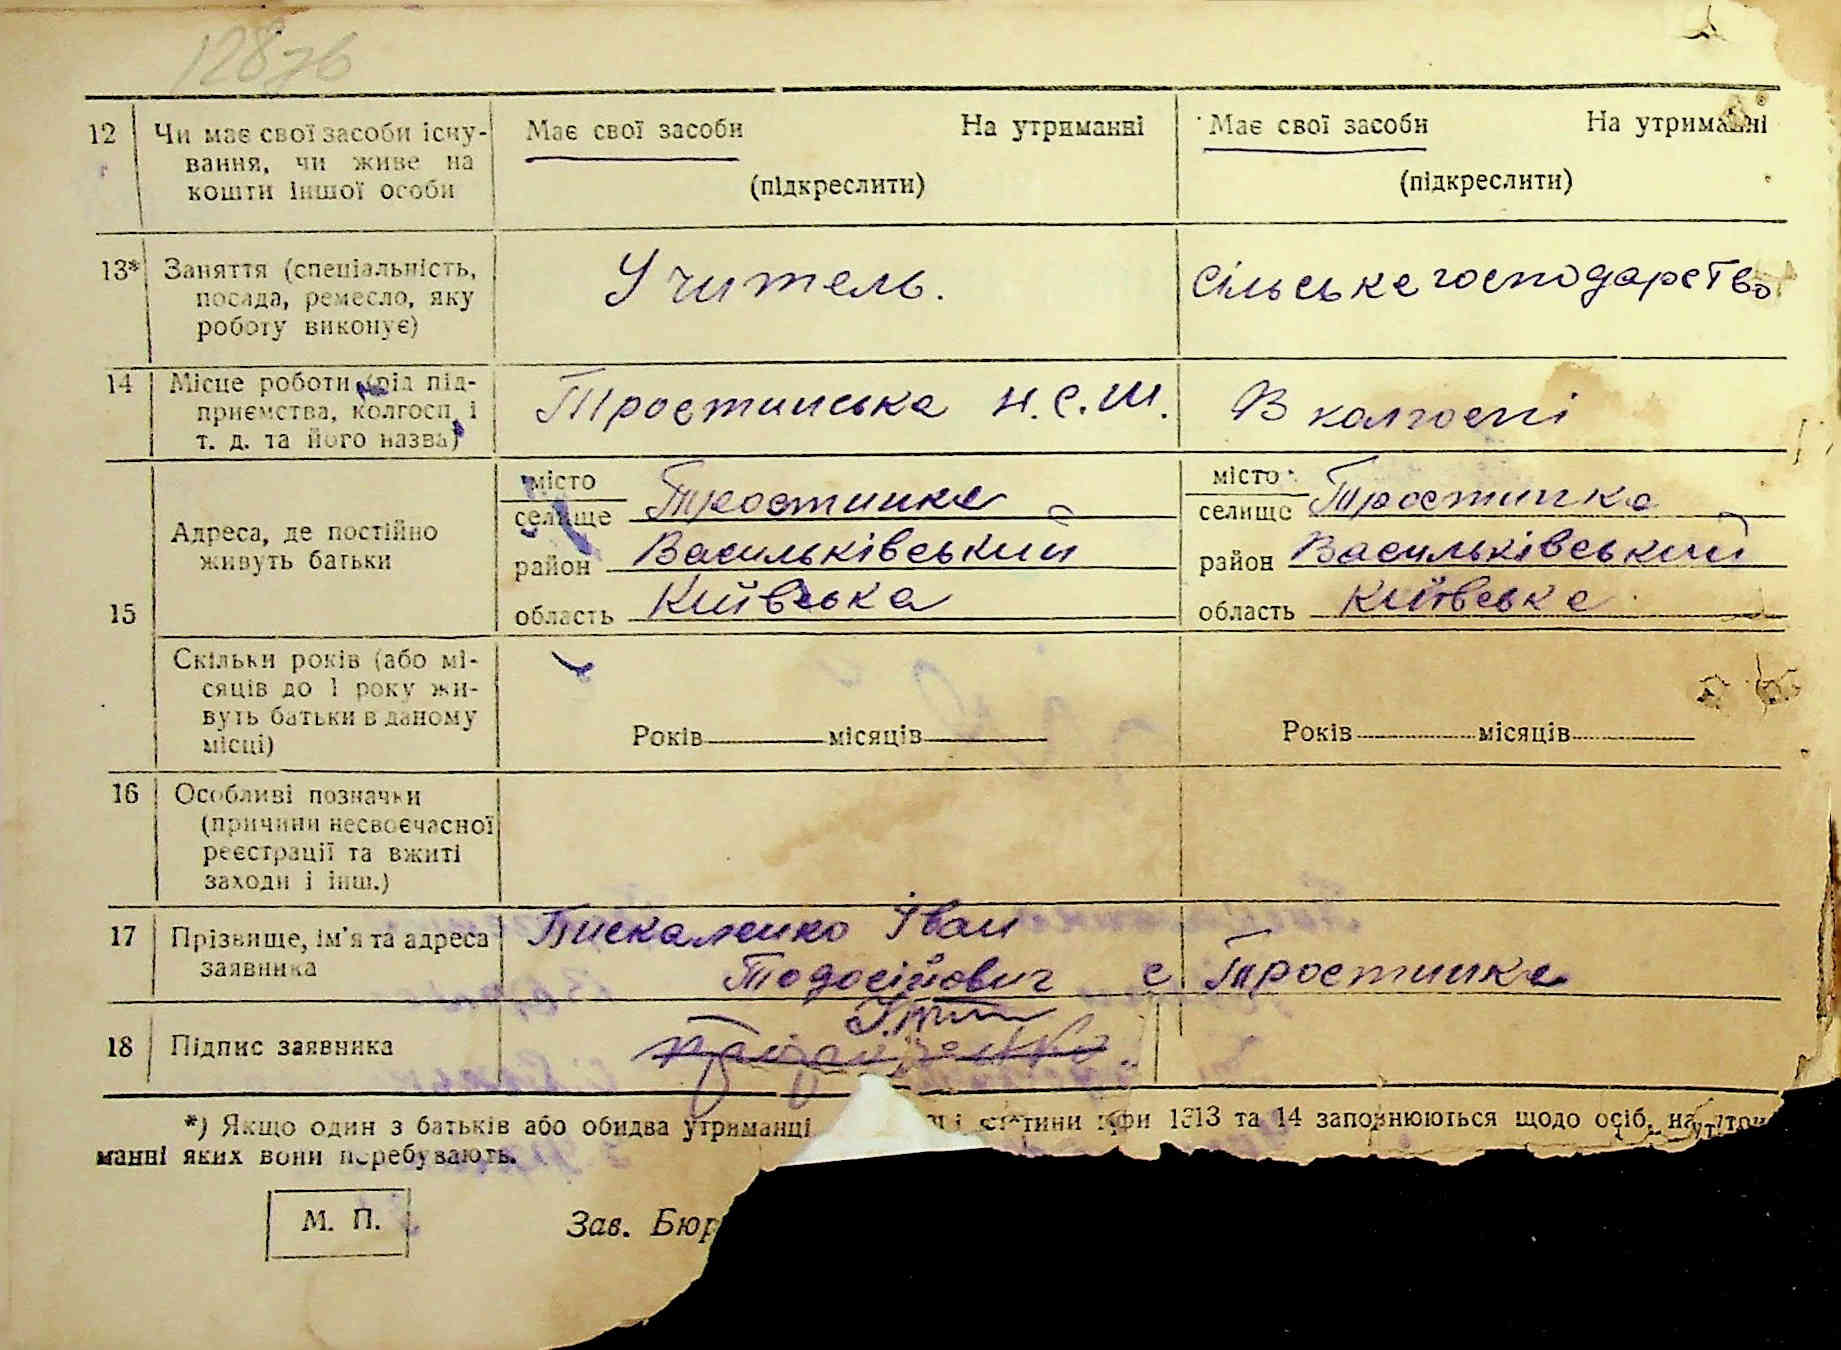 128зв
12 Чи має свої засоби існу- Має свої засоби На утриманні Має свої засоби На утриманні
вання, чи живе на
кошти іншої особи (підкреслити) (підкреслити)
13* Заняття (спеціальність, Учитель. Сільське господарство
посада, ремесло, яку
роботу виконує)
14 Місце роботи (рід під- Тростинська н.с.ш. В колгоспі
приємства, колгосп і
т. д. та його назва)
місто місто
селище Тростинка селище Тростинка
Адреса, де постійно
живуть батьки район Васильківський район Васильківський
15 область Київська область Київська
Скільки років (або мі-
сяців до 1 року жи-
вуть батьки в даному
місці) Років місяців Років місяців
16 Особливі позначки
(причини несвоєчасної
реєстрації та вжиті
заходи і інш.)
17 Прізвище, ім'я та адреса Пискаленко Іван
заявника Тодосійович с Тростинка
18 Підпис заявника
*) Якщо один з батьків або обидва утриманці графи 13 та 14 заповнюються щодо осіб, на утри-
манні яких вони перебувають.
М. П. Зав. Бюр